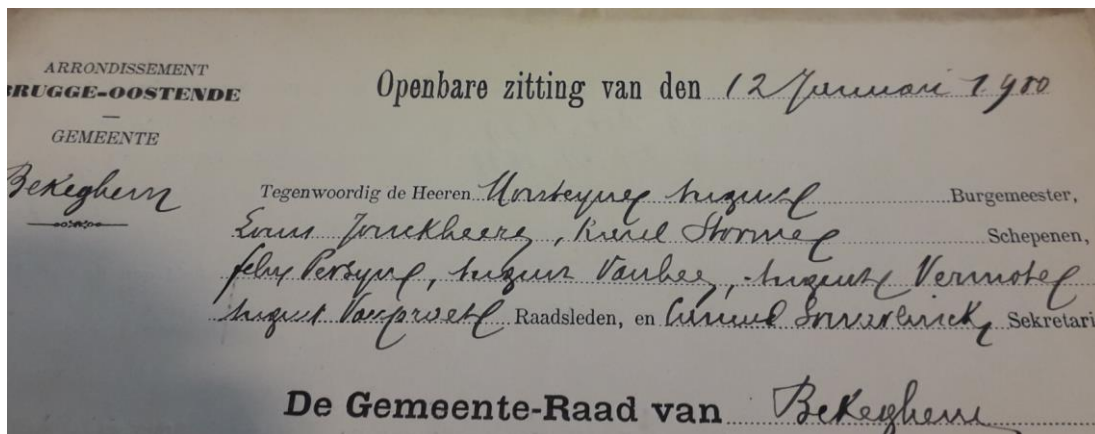 ARRONDISSEMENT
BRUGGE-OOSTENDE
GEMEENTE
Bekeghem
Openbare zitting van den 12 Januari 1900
Tegenwoordig de Heeren August Burgemeester,
Louis Jonckheere, Karel Storme Schepenen,
Felix Persyn, August Vanhee, August Vermote
August Vanpraet Raadsleden, en Sekretari
De Gemeente-Raad van Bekeghem